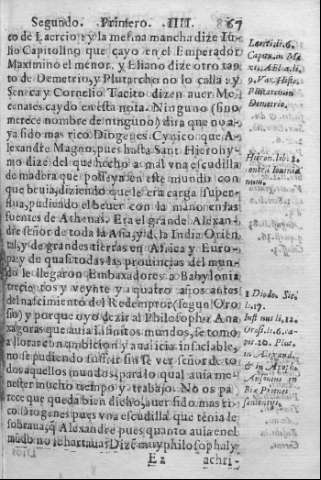 Segundo. Primero. IIII. 867
co de Laercio: y la mesma mancha dize Iu-
lio Capitolino que cayo en el Emperador
Maximino el menor, y Eliano dize otro tan
to de Demetrio, y Plutarcho no lo calla: y
Seneca y Cornelio Tacito dizen auer Me-
cenates caydo en esta nota. Ninguno (si no
merece nombre de ninguno) dira que no a-
ya sido mas rico Diogenes Cynico que A-
lexandre Magno, pues hasta Sant Hierony-
mo dize del que hecho a mal vna escudilla
de madera que posseya en este mundo con
que beuia, diziendo que le era carga super-
flua, pudiendo el beuer con la mano en las
fuentes de Athenas. Era el grande Alexan-
dre señor de toda la Asia, y de la India Orien
tal, y de grandes tierras en Africa y Euro-
pa: y de quasi todas las prouincias del mun-
do le llegaron Embaxadores a Babylonia
trecientos y veynte y quatro años antes
del nascimiento del Redemptor (segun Oro-
sio) y porque oyo dezir al Philosopho Ana
xagoras que auia infinitos mundos, se tomo
a llorar con ambicion y auaricia insaciable,
no se pudiendo suffrir sin se ver señor de to
dos aquellos mundos, para lo qual auia me-
nester mucho tiempo y trabajo. No os pa-
rece que queda bien dicho, auer sido mas ri-
co Diogenes pues vna escudilla que tenia le
sobraua, q̃ Alexandre pues quanto auia en el
mũdo no le hartaua? Dize muy philosophal-
Ea achri-
Laerti. li. 6.
Capito. in Ma
xi. Aelia. li.
9. Var. Histo.
Plutar. in
Demetrio.
Hieron. lib. 2.
contra Iouinia
num.
1 Diodo. Sic.
li. 17.
Iusti nus li. 12.
Oros. li.
in Alexand.